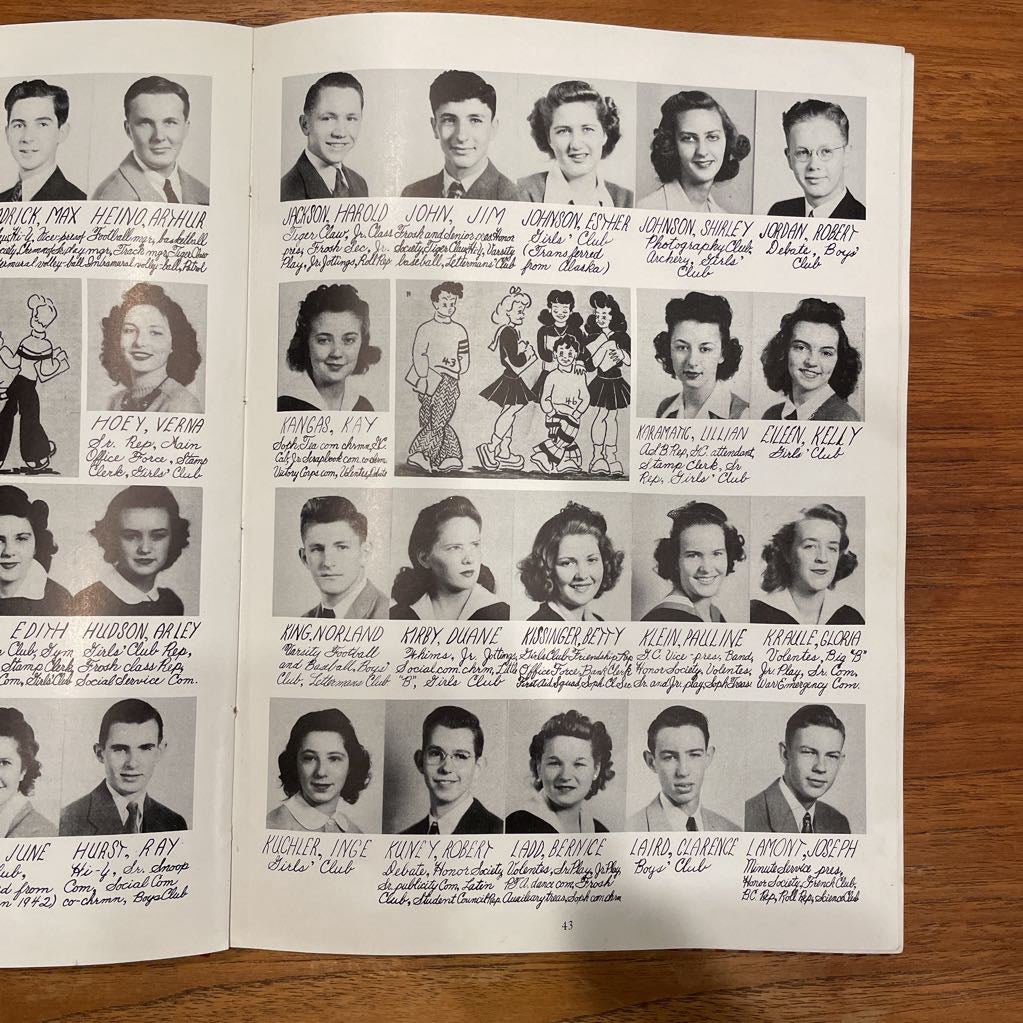 DRICK, MAX
HEINO, ARTHUR
Hi-Y, Vice-pres of
Football mgr, basketball
mgr, Track mgr, Tiger Claw
Intramural volley-ball, Patrol
HOEY, VERNA
Sr. Rep, Main
Office Force, Stamp
Clerk, Girls' Club
EDITH
HUDSON, ARLEY
Club, Gym
Girls' Club Rep,
Stamp Clerk,
Frosh class Rep,
Com, Girls' Club
Social Service Com.
JUNE
HURST, RAY
Hi-Y, Sr. Snoop
ed from
Com, Social Com
in 1942)
co-chrmn, Boys Club
JACKSON, HAROLD
JOHN, JIM
JOHNSON, ESTHER
JOHNSON, SHIRLEY
JORDAN, ROBERT
Tiger Claw, Jr. Class
pres, Frosh Sec, Jr.
Play, Jr. Jottings, Roll Rep
Frosh and Senior pres, Honor
Society, Tiger Claw, Hi-Y, Varsity
baseball, Lettermans' Club
Girls' Club
(Transferred
from Alaska)
Photography Club,
Archery, Girls'
Club
Debate, Boys'
Club
KANGAS, KAY
Soph. Tea com chrmn, G.C.
Cab, Jr. Scrapbook com. co-chrm
Victory Corps com, Volentes, Debate
43
46
KARAMATIC, LILLIAN
Ad. B. Rep, G.C. attendant,
Stamp Clerk, Sr.
Rep, Girls' Club
EILEEN, KELLY
Girls' Club
KING, NORLAND
KIRBY, DUANE
KISSINGER, BETTY
KLEIN, PAULINE
KRAULE, GLORIA
Varsity Football
and Baseball, Boys'
Club, Lettermens Club
Whims, Jr. Jottings,
Social com. chrm, Little
"B", Girls Club
Girls Club Friendship Rep
Office Force, Bank Clerk
First Aid Squad, Soph. Cl. Sec
G.C. Vice-pres, Band,
Honor Society, Volentes,
Sr. and Jr. play, Soph Treas.
Volentes, Big "B"
Jr. Play, Sr. Com,
War Emergency Com.
KUCHLER, INGE
KUNEY, ROBERT
LADD, BERNICE
LAIRD, CLARENCE
LAMONT, JOSEPH
Girls' Club
Debate, Honor Society,
Sr. publicity Com, Latin
Club, Student Council Rep.
Volentes, Sr. Play, Jr. Play,
P.T.A. dance com, Frosh
Auxiliary treas, Soph com chrm
Boys' Club
Minute Service pres,
Honor Society, French Club,
B.C. Rep, Roll Rep, Science Club
43